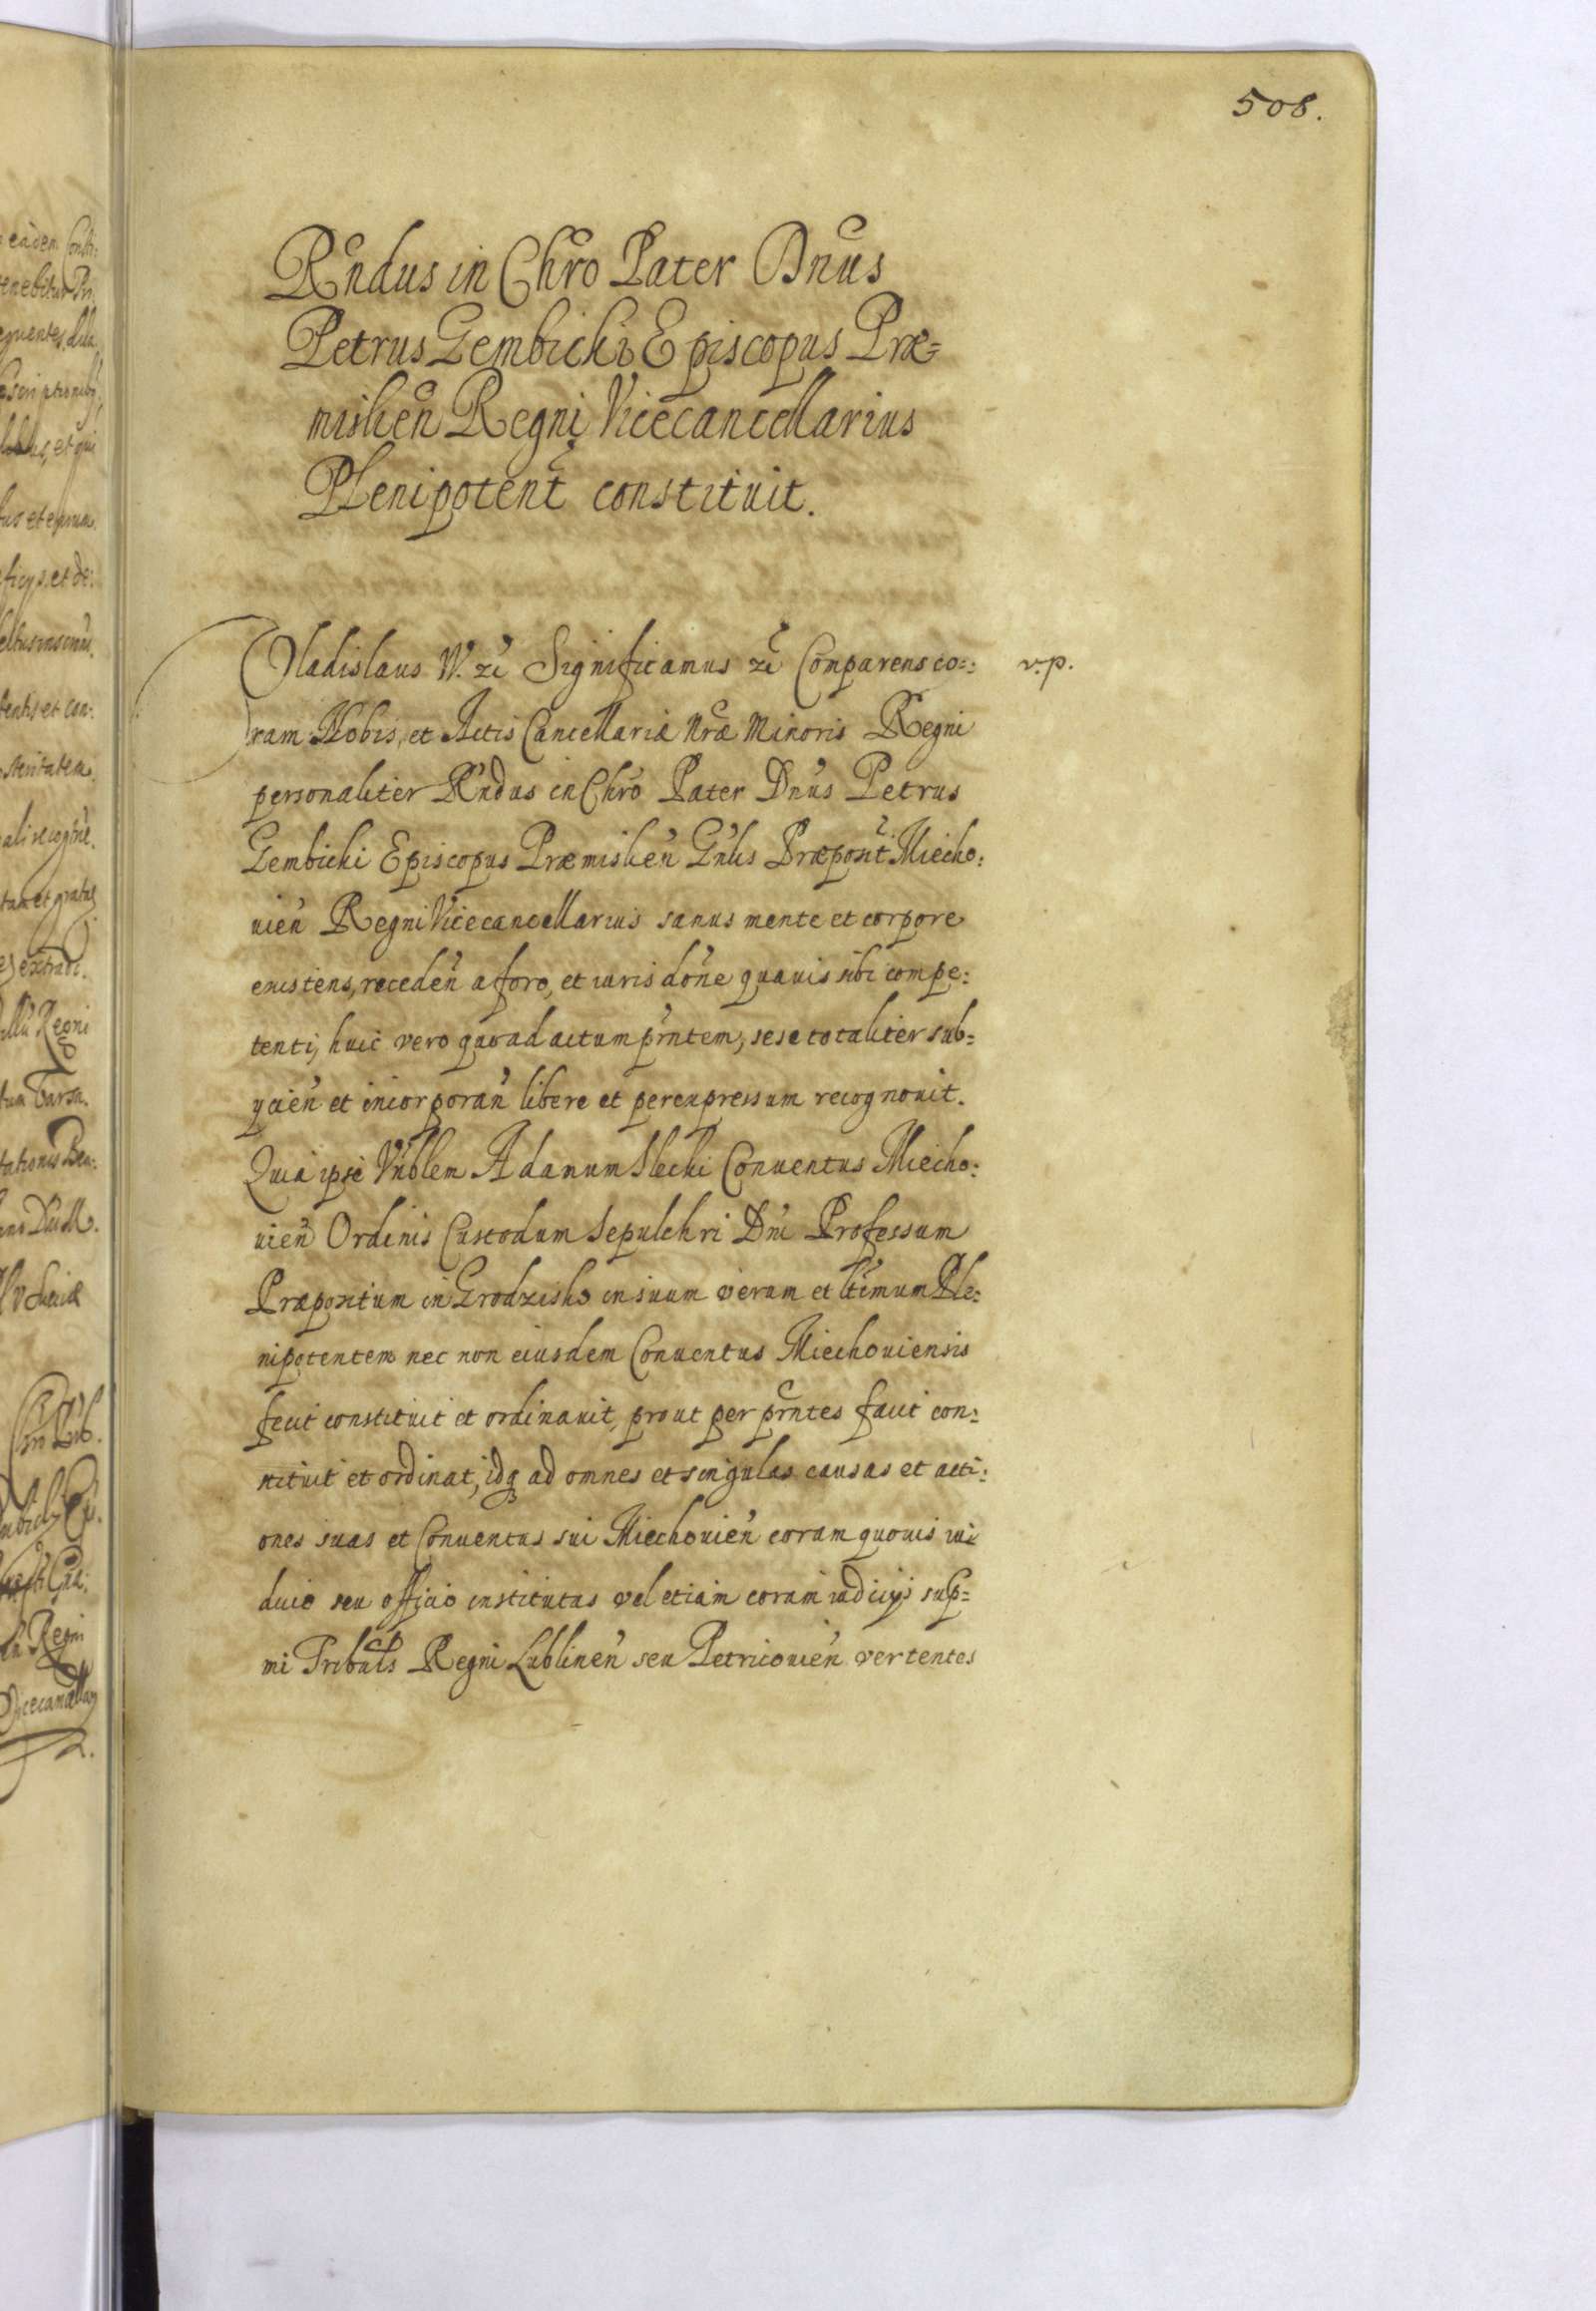 508.
Rndus in Chro Pater Dnus
Petrus Gembicki Episcopus Præ=
mislien Regni Vicecancellarius
Plenipotent constituit.
Vladislaus IV. etc Significamus etc Comparens co=
v.p.
ram Nobis, et Actis Cancellariæ Nræ Minoris Regni
personaliter Rndus in Chro Pater Dnus Petrus
Gembicki Episcopus Præmislien Gnlis Præposit Miecho:
uien Regni Vicecancellarius sanus mente et corpore
existens, receden a foro, et iuris done quauis sibi compe:
tenti, huic vero quoad actum prntem, sese totaliter sub=
ycien et incorporan libere et per expressum recognouit.
Quia ipse Vnblem Adamum Slecki Conuentus Miecho:
uien Ordinis Custodum Sepulchri Dni Professum
Præpositum in Grodzisko in suum verum et ltimum Ple:
nipotentem nec non eiusdem Conuentus Miechouiensis
fecit constituit et ordinauit, prout per prntes facit con:
stituit et ordinat, idq ad omnes et singulas causas et acti:
ones suas et Conuentus sui Miechouien coram quouis iu
dicio seu officio institutas vel etiam coram iudicijs sup=
mi Tribunls Regni Lublinen seu Petricouien vertentes